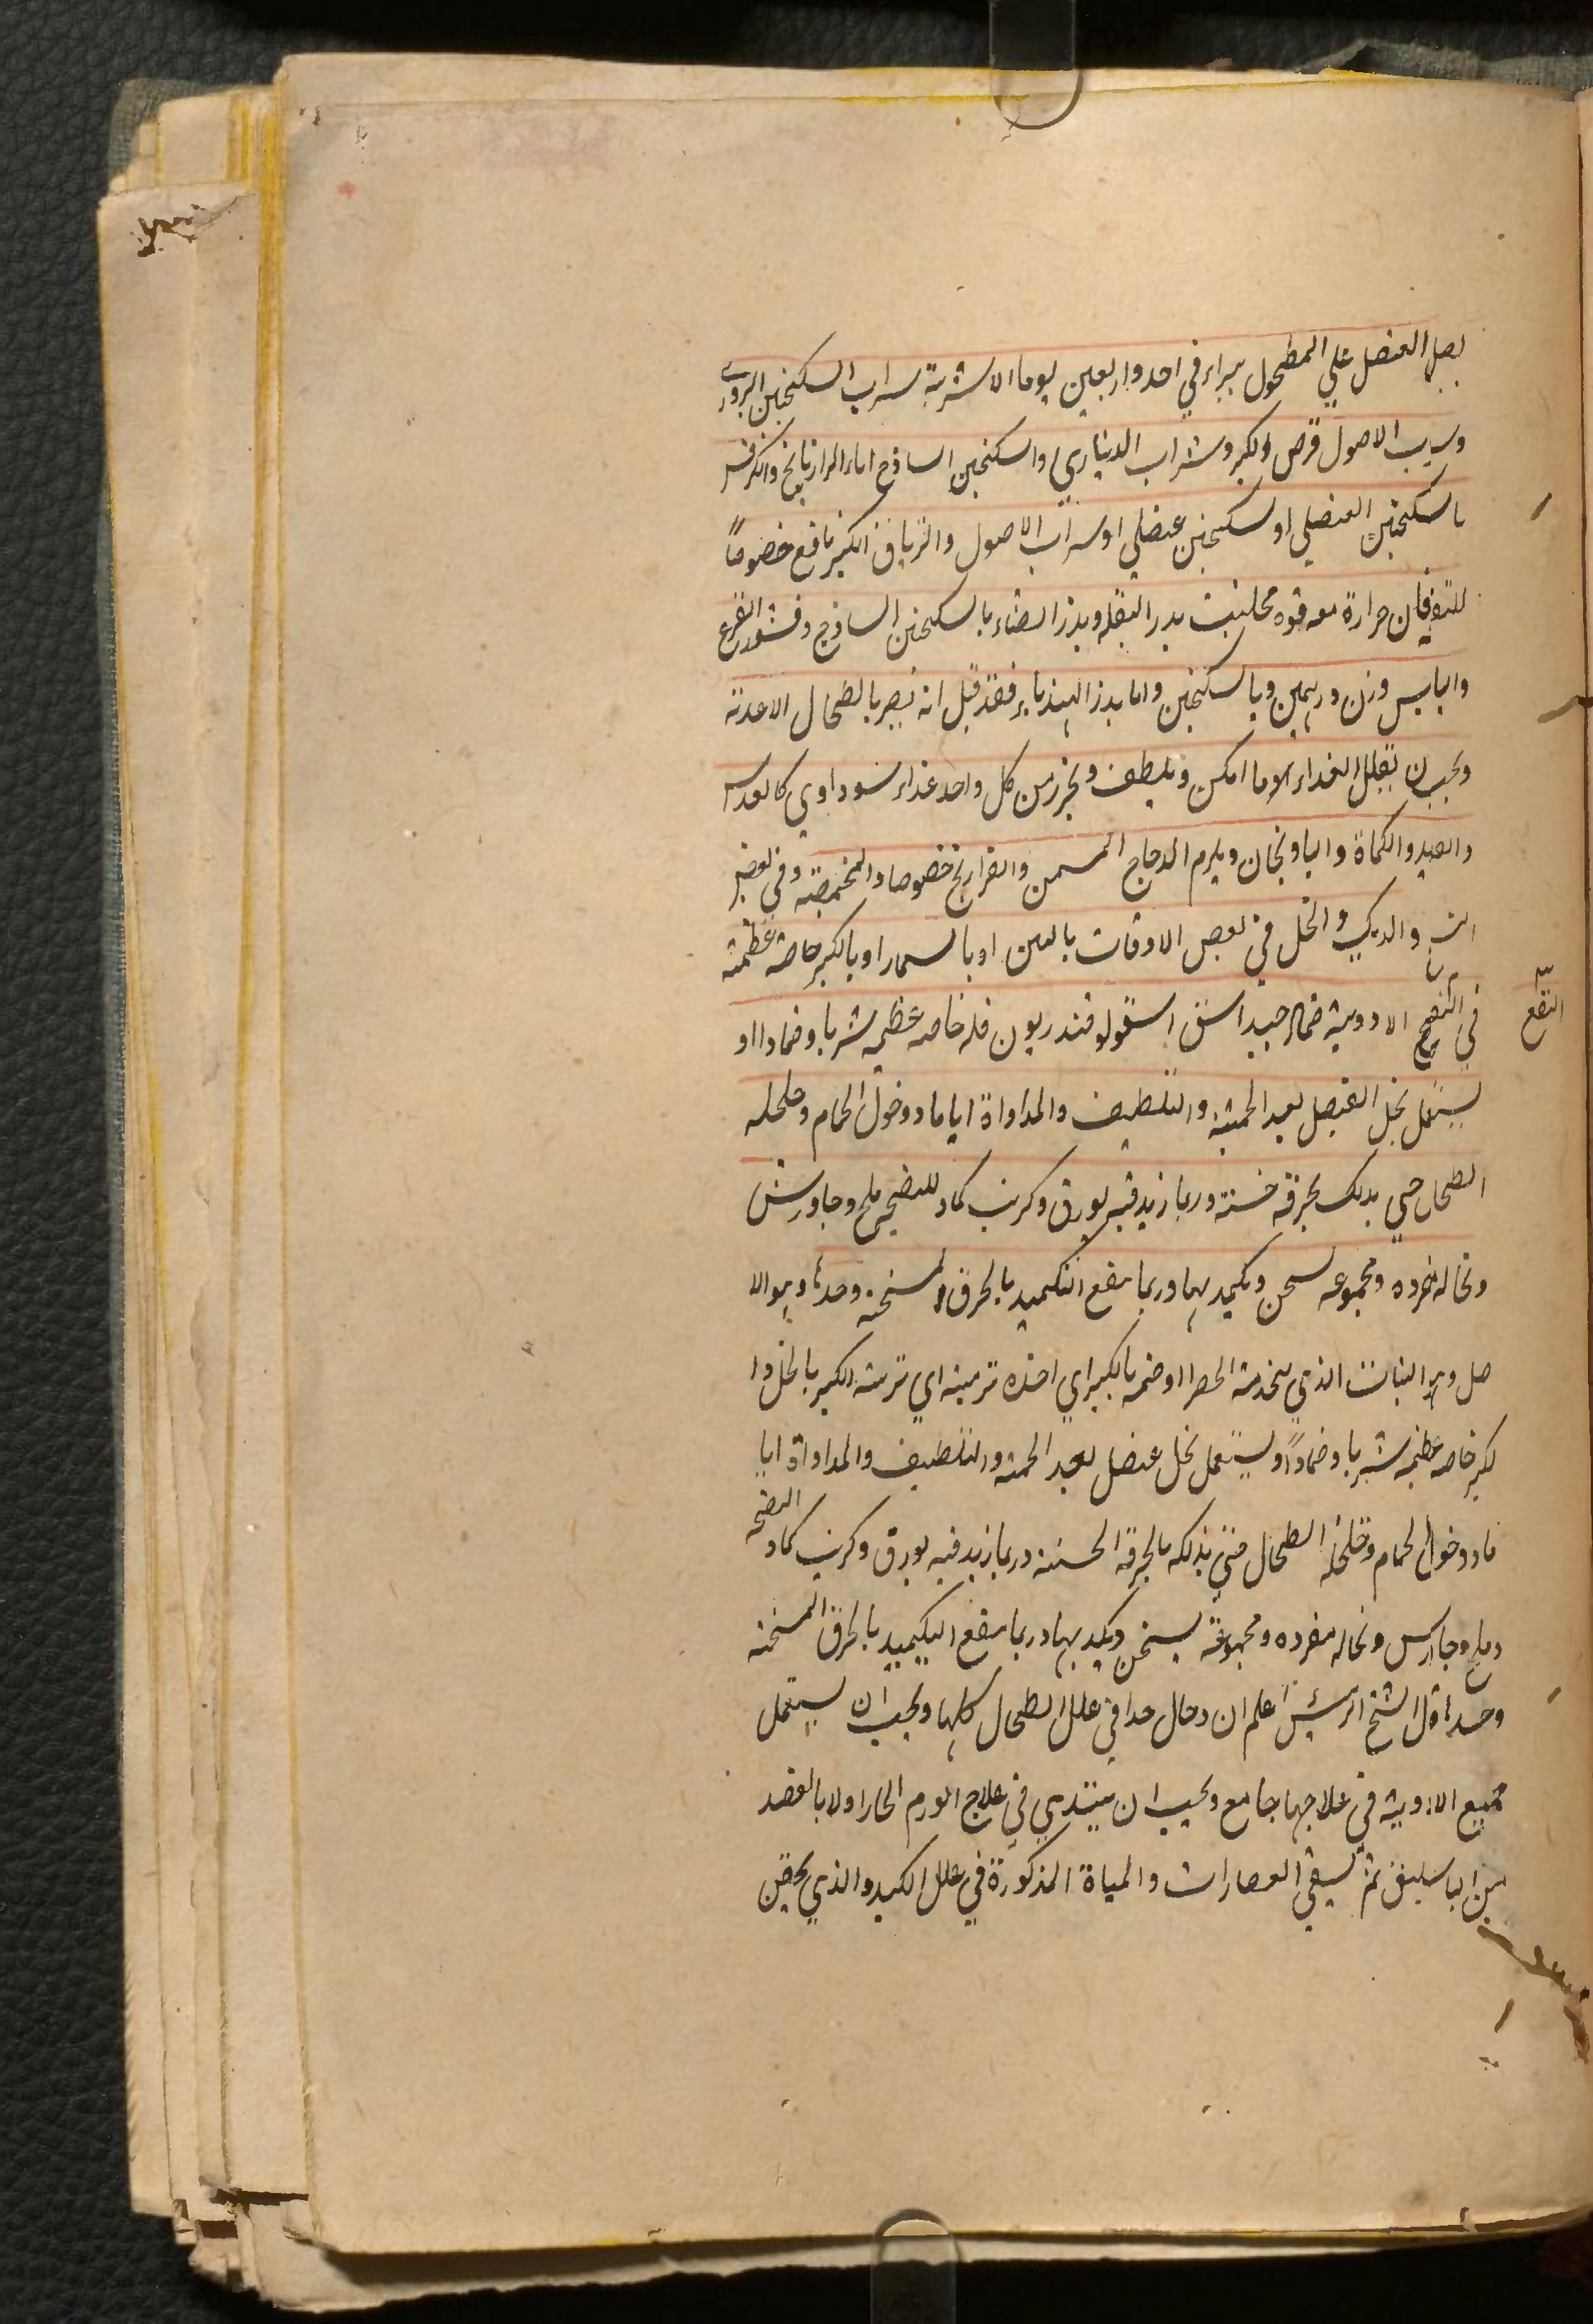 بصل العنصل علي المطحول يبرا في احد واربعين يوما الاشربة شراب السكنجبين البزوري
وشراب الاصول قرص الكبر وشراب الديناري والسكنجبين الساذج اماء الرازيانج والكرفس
باسكنجبين العنصلي او سكنجبين عنصلي او شراب الاصول والترياق الكبير نافع خصوصاً
فان حرارة معه قوة بذر البقله وبذر القثاء بالسكنجبين الساذج وقشور القرع
واليابس وزن درهمين وبالسكنجبين واما بذر الهندباء فقد قيل انه يضر بالطحال الاغذية
ويجب ان يقلل الغذاء لا ما امكن ويلطف ويحترز من كل واحد غذاء سوداوي كالعدس
والصيد والكماة والباذنجان ويلزم الدجاج المسمن والفراريج خصوصا والمحمضة وفي بعض
والديك والخل في بعض الاوقات بالتين او بالسمار او بالكبر خاصة عظيمة
في النضج الادوية ضماد جيد اشق اسقولوقندريون فله خاصه عظيمه شربا وضمادا او
النفع
يستعمل بخل العنصل بعد الحمية والتلطيف والمداواة اياما دخول الحمام وخلخله
الطحال حتي يدلك بخرقه خشنة وربما زيد فيه بورق وكرنب كماد للنضج ملح وجاورش
ونخاله مفرده ومجموعه تسخن ويكمد بها وربما ينفع التكميد بالخرق المسخنة وحدها وهو الا
صل وهو النبات الذي الحصر او ضمه بالكبر اي اخذه تربيته اي تربية الكبر بالخل وا
لكبر خاصه عظيمه شربا وضماداً ويستعمل بخل عنصل بعد الحمية والتلطيف والمداواة ايا
ما دخول الحمام وخلخله الطحال حتي يدلكه بالخرقه الخشنة وربما زيد فيه بورق وكرنب كماد النضج
وملح وجاورس ونخاله مفرده ومجموعة يسخن ويكمد بها وربما ينفع التكميد بالخرق المسخنه
وحدها قال الشيخ الرئيس اعلم ان دحال جدا في علل الطحال كلها ويجب ان يستعمل
جميع الادوية في علاجها جامع ويجب ان يبتدي في علاج الورم الحار اولا بالفصد
من الباسليق ثم يسقي العصارات والمياة المذكورة في علل الكبد والذي يحقن